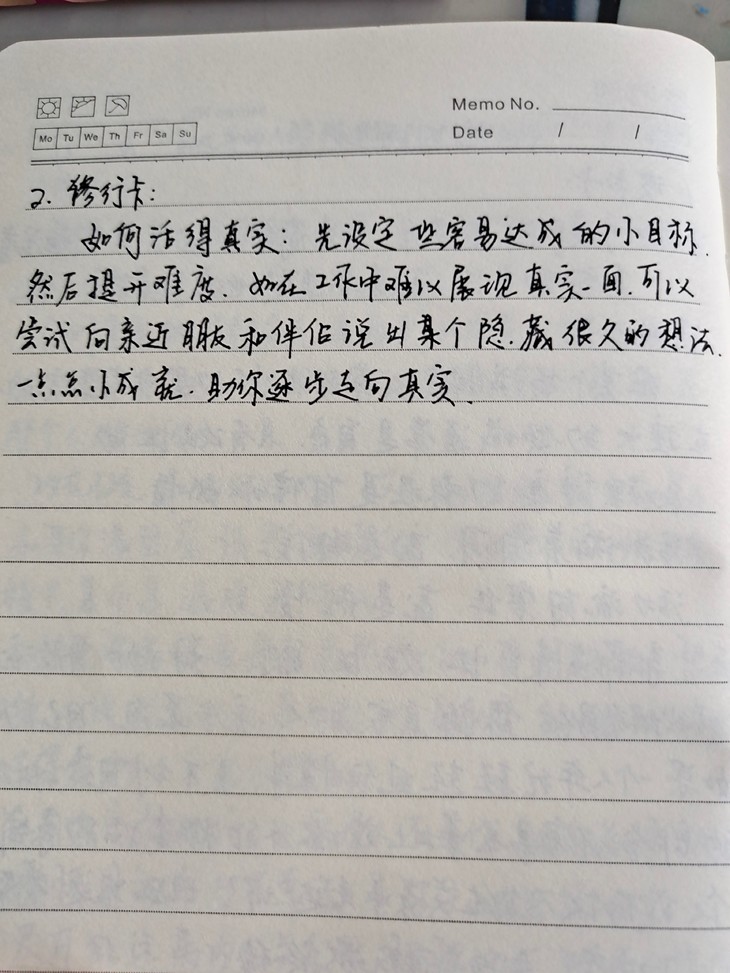 Memo No.
Mo Tu We Th Fr Sa Su
Date / /
2. 修行卡:
如何活得真实: 先设定些容易达成的小目标.
然后提升难度. 如在工作中难以展现真实一面.可以
尝试向亲近朋友和伴侣说出某个隐.藏很久的想法.
一点点小成就.助你逐步走向真实.